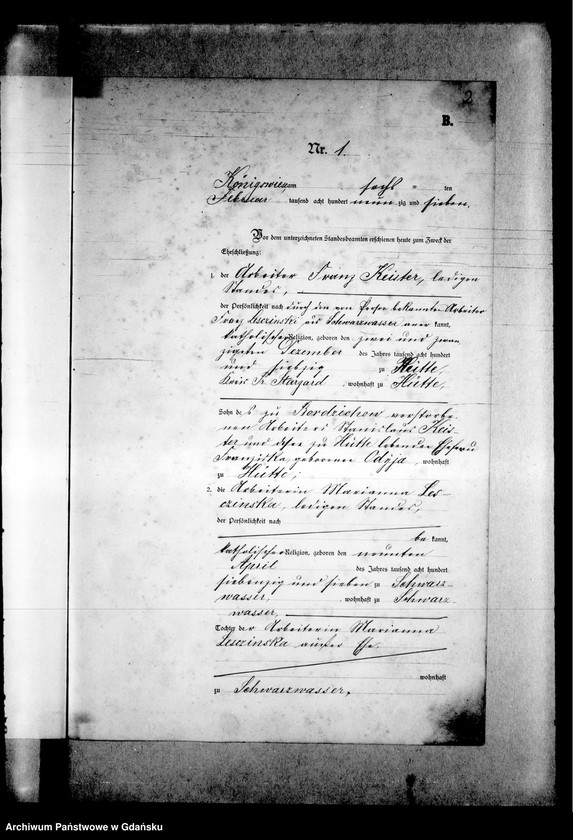 2
B.
Nr. 1.
Königswiese, am sechs ten
Februar tausend acht hundert neun zig und sieben.
Vor dem unterzeichneten Standesbeamten erschienen heute zum Zweck der
Eheschließung:
1. der Arbeiter Franz Keister, ledigen
Standes,
der Persönlichkeit nach durch den von Person bekannten Arbeiter
Franz Lesczinski aus Schwarzwasser aner kannt,
katholischer Religion, geboren den zwei und zwan
zigsten Dezember des Jahres tausend acht hundert
und siebzig zu Hütte,
Kreis Pr. Stargard, wohnhaft zu Hütte,
Sohn des zu Bordzichow verstorbe
nen Arbeiters Stanislaus Keis-
ter und dessen zu Hütte lebenden Ehefrau
Franziska, geborenen Odyja, wohnhaft
zu Hütte;
2. die Arbeiterin Marianna Les-
czinska, ledigen Standes,
der Persönlichkeit nach
be kannt,
katholischer Religion, geboren den neunten
April des Jahres tausend acht hundert
siebenzig und sieben zu Schwarz-
wasser, wohnhaft zu Schwarz-
wasser,
Tochter der Arbeiterin Marianna
Lesczinska außer Ehe.
wohnhaft
zu Schwarzwasser.
Archiwum Państwowe w Gdańsku